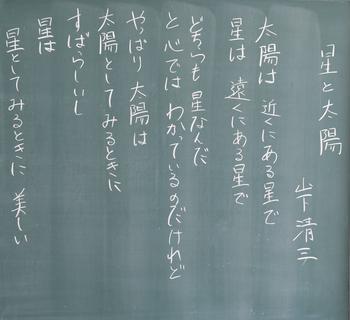 星と太陽
山下清三
太陽は 近くにある星で
星は 遠くにある星で
どっちも星なんだ
と 心では わかっているのだけれど
やっぱり 太陽は
太陽としてみるときに
すばらしいし
星は
星としてみるときに 美しい